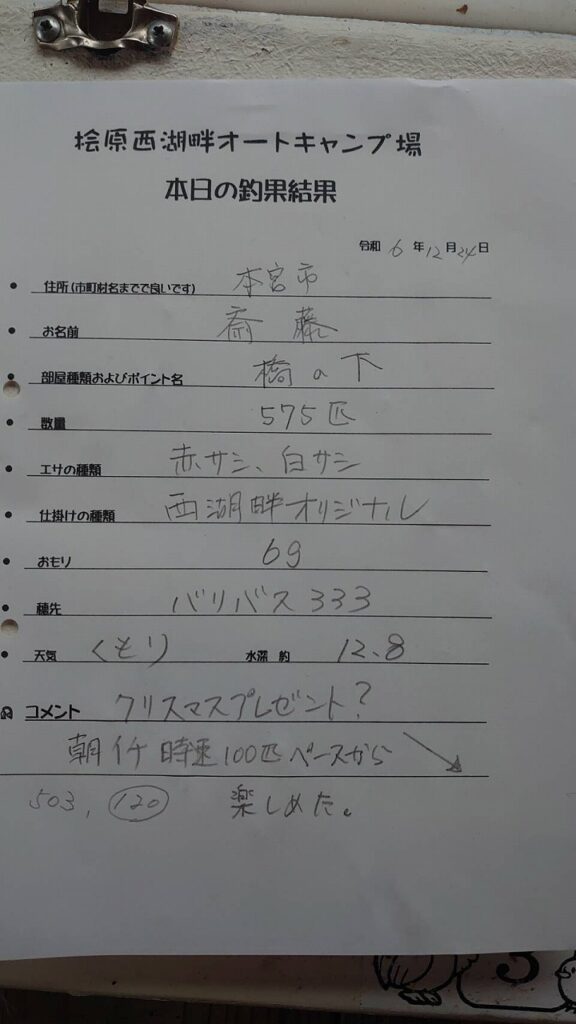 桧原西湖畔オートキャンプ場
本日の釣果結果
令和 6 年 12 月 24 日
住所(市町村名までで良いです) 本宮市
お名前 斎藤
部屋種類およびポイント名 橋の下
数量 575匹
エサの種類 赤サシ、白サシ
仕掛けの種類 西湖畔オリジナル
おもり 6g
穂先 バリバス333
天気 くもり 水深 約 12.8
コメント クリスマスプレゼント?
朝イチ 時速100匹ペースから
503, 120 楽しめた。